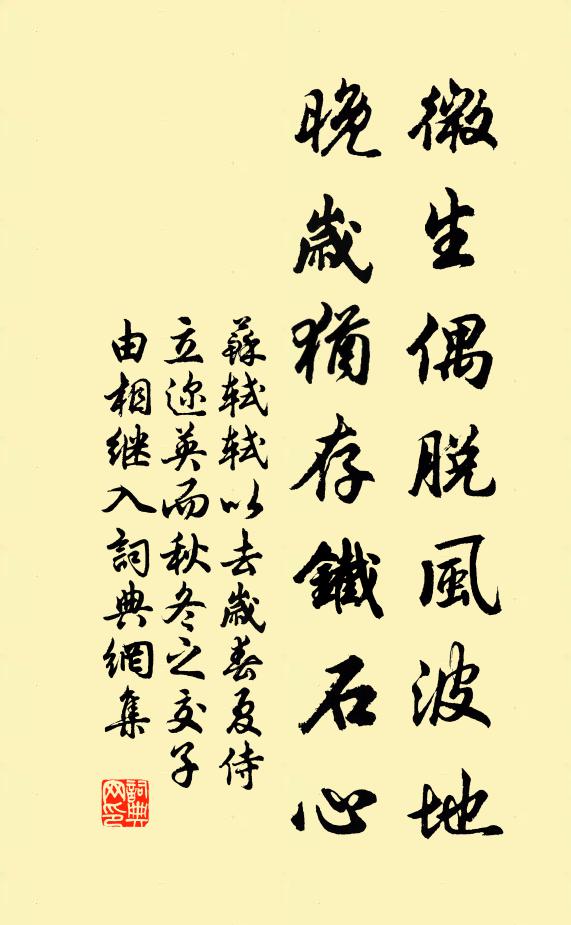 微生偶脱風波地
晚歲猶存鐵石心
蘇軾軾以去歲春夏侍
立迩英而秋冬之交子
由相继入詞典網集
詞典网印